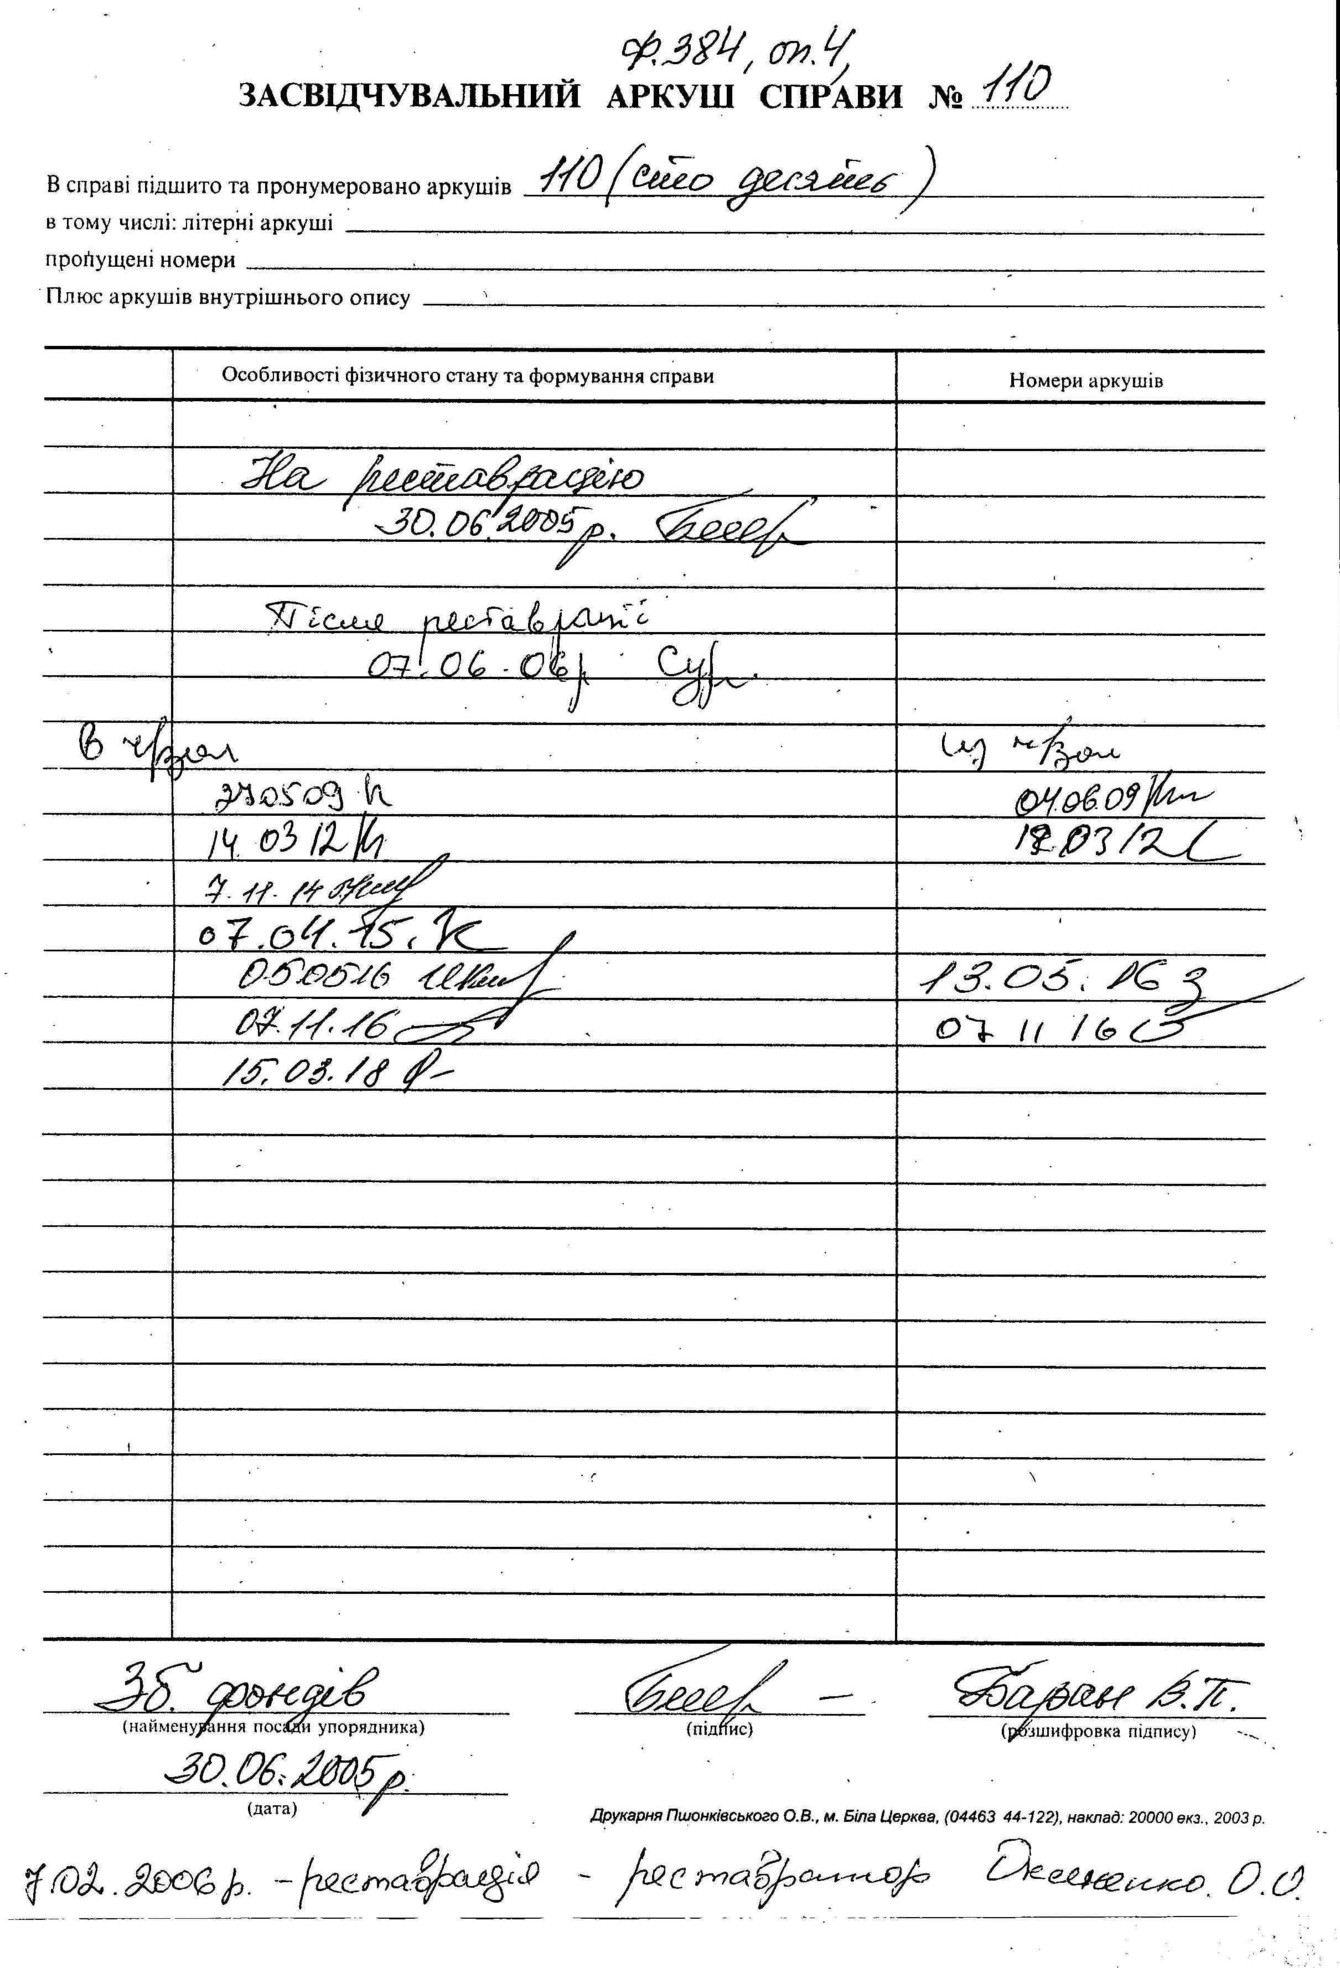 ф.384, оп.4,
ЗАСВІДЧУВАЛЬНИЙ АРКУШ СПРАВИ № 110
В справі підшито та пронумеровано аркушів 110 (сто десять)
в тому числі: літерні аркуші
пропущені номери
Плюс аркушів внутрішнього опису
Особливості фізичного стану та формування справи Номери аркушів
На реставрацію
30.06.2005р.
Після реставрації
07.06.06р
В ч/зал из ч/зал
270509 04.06.09
14.03 12 03 12
7.11.14
07.04.15.
050516 13.05.16
07.11.16 07 11 16
15.03.18
Зб. фондів Баран В.П.
(найменування посади упорядника) (підпис) (розшифровка підпису)
30.06.2005р.
(дата)
Друкарня Пшонківського О.В., м. Біла Церква, (04463 44-122), наклад: 20000 екз., 2003 р.
7.02.2006р. - реставрація - реставратор О.О.